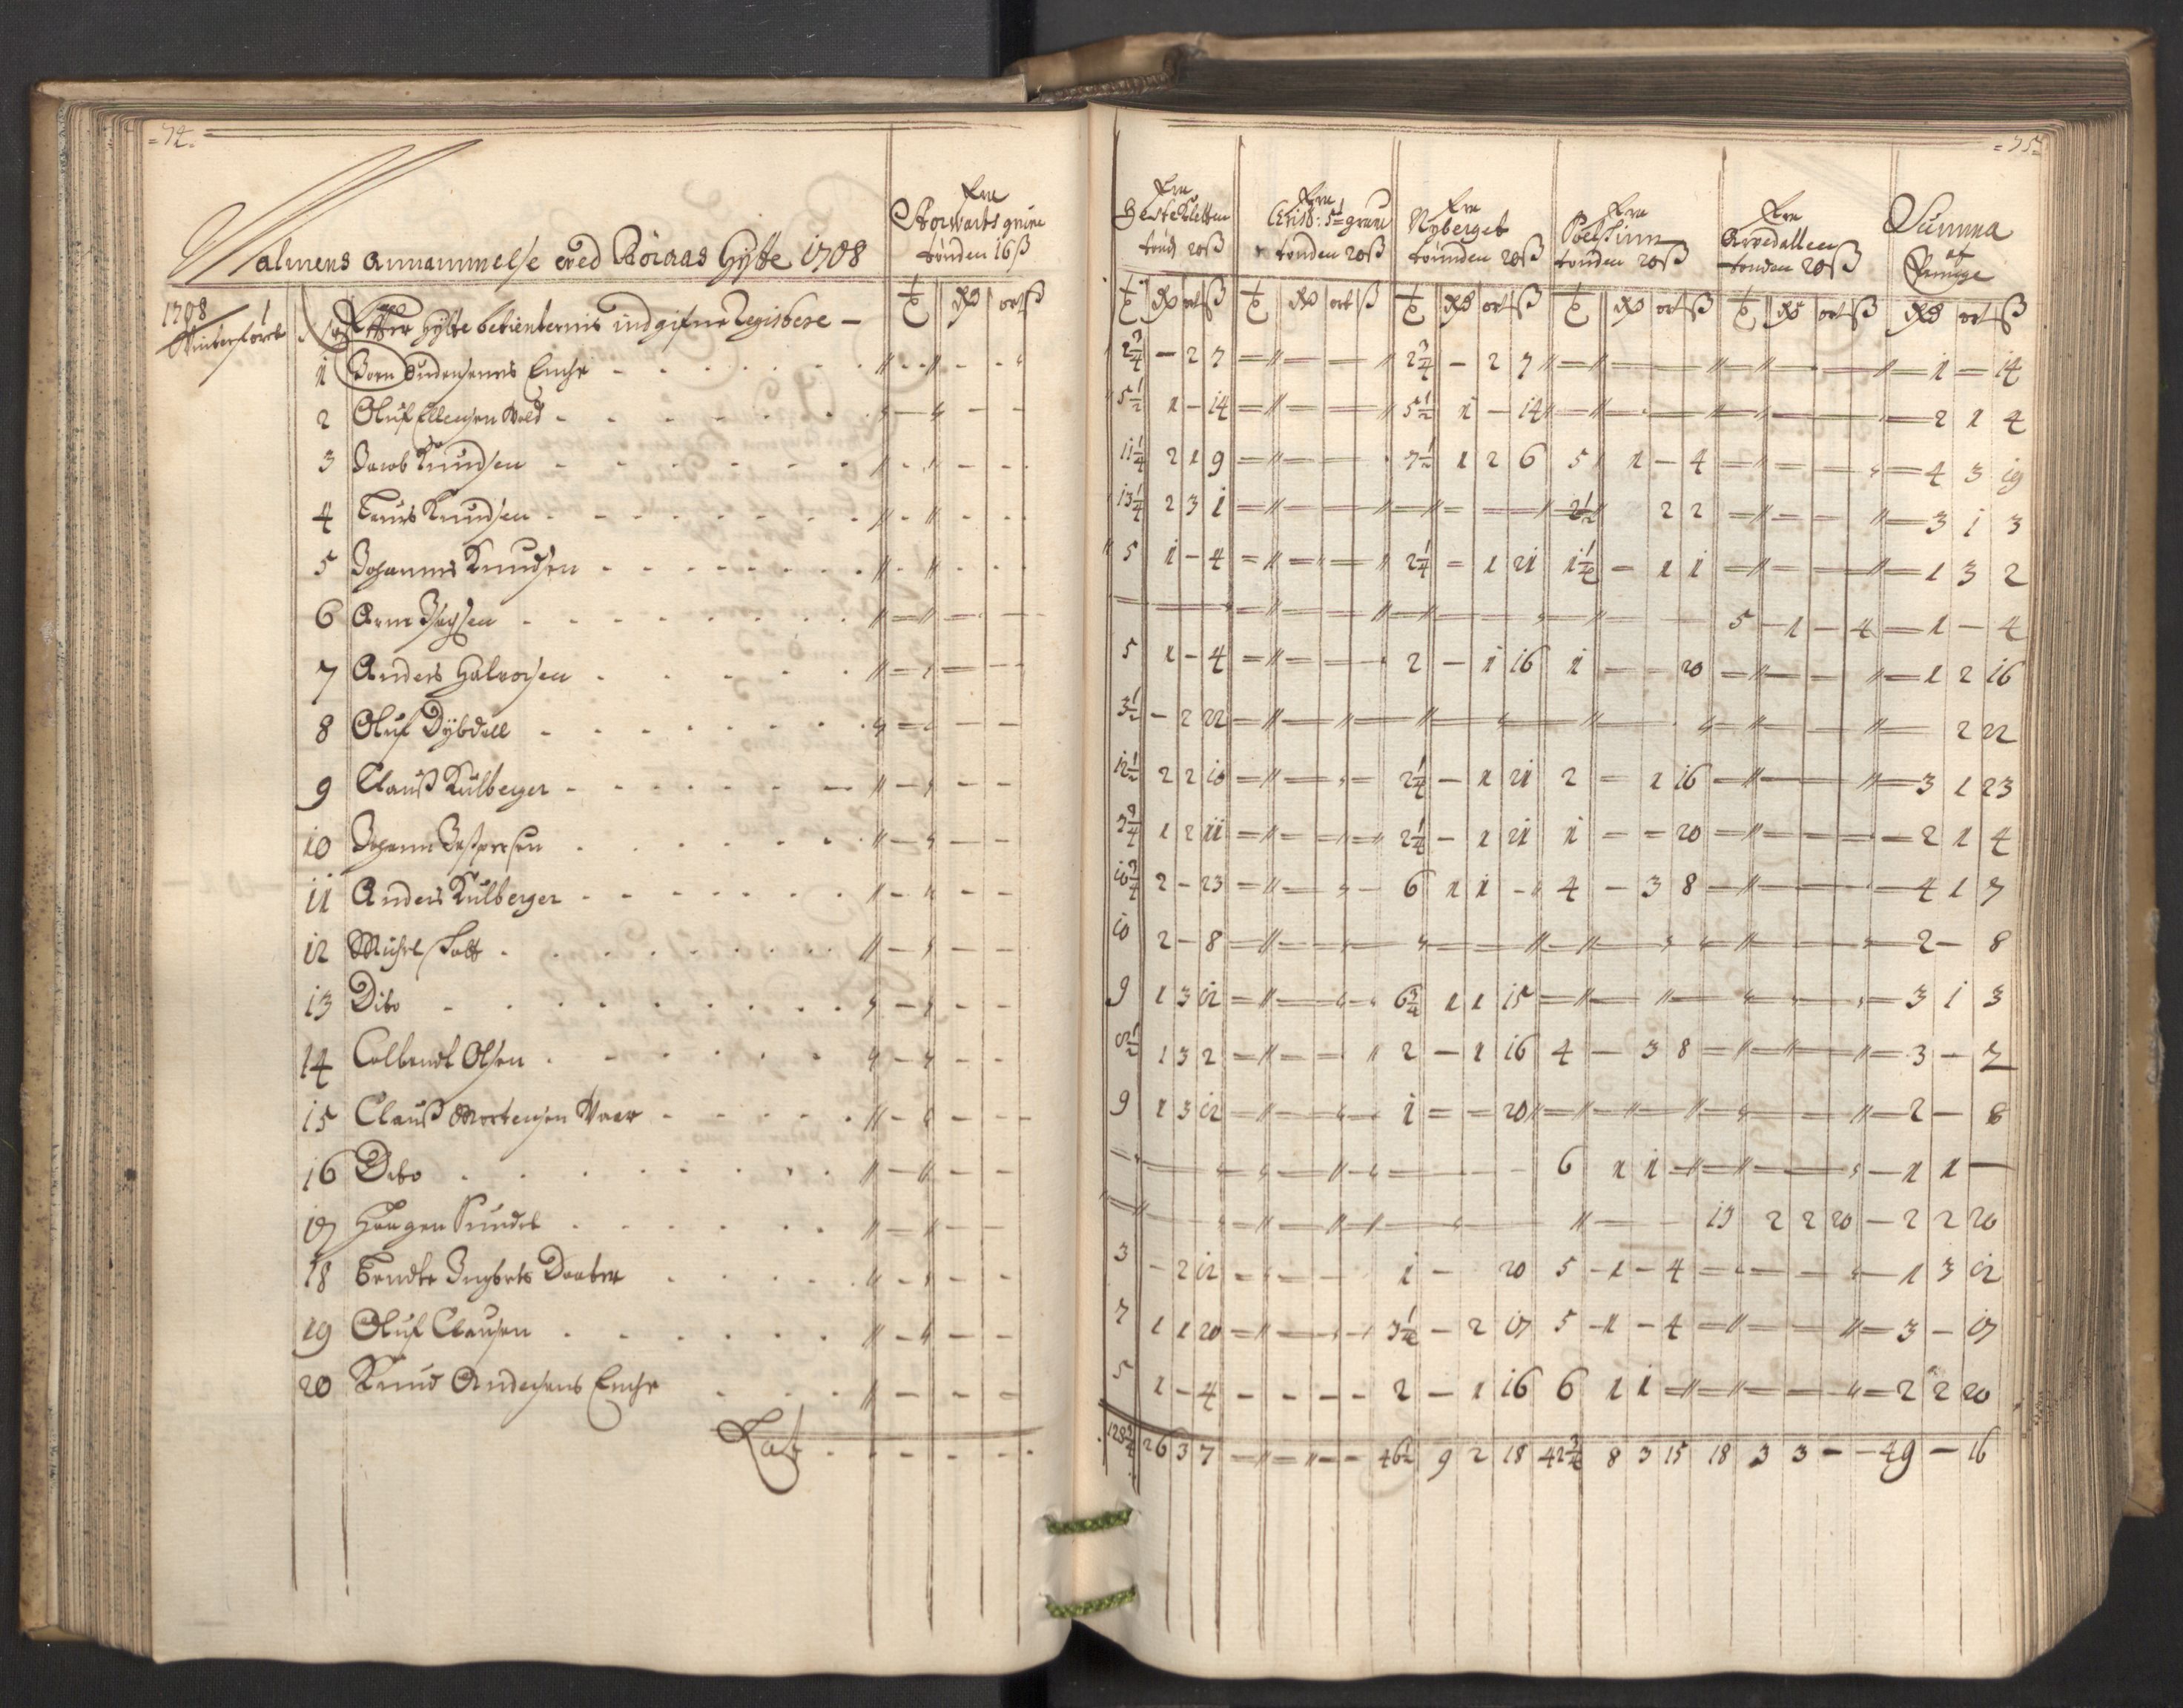 = 74.
Malmens Annammelse wed Röraas Hytte 1708
Fra
Storwarts grube
tønden 16 ß
1708
Winterførsel
Effter Hytte betienternis indgifne Register —
t Rd ort ß
1 Joen Andersens Enche
2 Oluf Ellengen Wold
3 Jacob Knudsen
4 Laurs Knudsen
5 Johannes Knudsen
6 Arne
7 Anders Halvorsen
8 Oluf Dÿbdall
9 Clauß Kulberger
10 Johann
11 Anders Kulberger
12 Michel
13 Dito
14 Colbendt Olsen
15 Clauß Mortensen
16 Dito
17 Haagen
18 Bendte
19 Oluf Clausen
20 Knud Andersens Enche
Lat
= 75 =
Fra
Hesteklette
tønd 20 ß
Fra
Christ: 5te grube
tønden 20 ß
Fra
Nyberget
tønnden 20 ß
Fra
tønden 20 ß
Fra
Arvedallen
tønden 20 ß
Summa
af
Penge
t Rd ort ß t Rd ort ß t Rd ort ß t Rd ort ß t Rd ort ß Rd ort ß
2 3/4 — 2 7 2 3/4 — 2 7 — 1 — 14
5 1/2 1 — 14 5 1/2 1 — 14 — 2 1 4
11 1/4 2 1 9 7 1/2 1 2 6 5 1 — 4 — 4 3 19
13 1/4 2 3 1 2 1/2 2 2 — 3 1 3
5 1 — 4 2 1/4 — 1 21 1 1/4 — 1 1 — 1 3 2
5 — 1 — 4 — 1 — 4
5 1 — 4 2 — 1 16 1 — — 20 — 1 2 16
3 1/2 — 2 22 — 2 22
12 1/2 2 2 10 2 1/4 — 1 21 2 — 1 16 — 3 1 23
7 3/4 1 2 11 2 1/4 — 1 21 1 — — 20 — 2 1 4
10 3/4 2 — 23 6 1 1 — 4 — 3 8 — 4 1 7
10 2 — 8 — 2 — 8
9 1 3 12 6 3/4 1 1 15 — 3 1 3
8 1/2 1 3 2 2 — 1 16 4 — 3 8 — 3 — 2
9 1 3 12 1 — — 20 — 2 — 8
6 1 1 — 1 1 —
13 2 2 20 — 2 2 20
3 — 2 12 1 — 20 5 — 1 — 4 — 1 3 12
7 1 1 20 3 1/4 — 2 17 5 — 1 — 4 — 3 — 17
5 1 — 4 2 — 1 16 6 1 1 — 2 2 20
128 3/4 26 3 7 46 1/2 9 2 18 42 3/4 8 3 15 18 3 3 — — 49 — 16